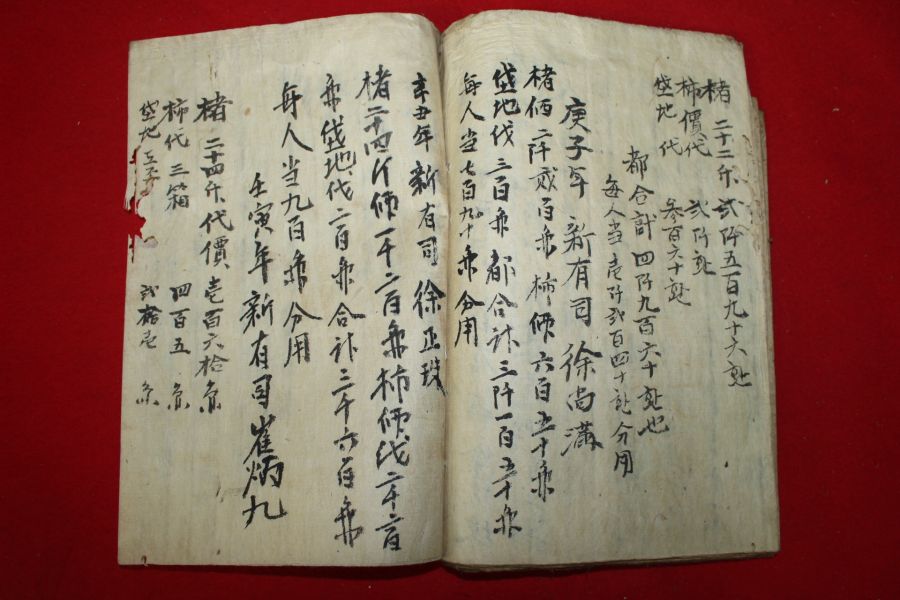 楮 二十二斤 貳阡五百九十六㪳
柿價代 貳阡㪳
垈地代 參百六十㪳
都合計 四阡九百六十㪳也
每人当 壱阡貳百四十㪳 分用
庚子年 新有司 徐尙满
楮価 二阡貳百㪳 柿価六百五十㪳
垈地代 三百㪳 都合計 三阡一百五十㪳
每人当七百九十㪳分用
辛丑年 新有司 徐正
楮二十四斤価一千二百㪳 柿価代二千二百
㪳 垈地代二百㪳 合計三千六百㪳
每人当九百㪳分用
壬寅年新有司崔炳九
楮 二十四斤 代價 壱百六拾
柿代 三箱 四百五
垈地 貳拾壱